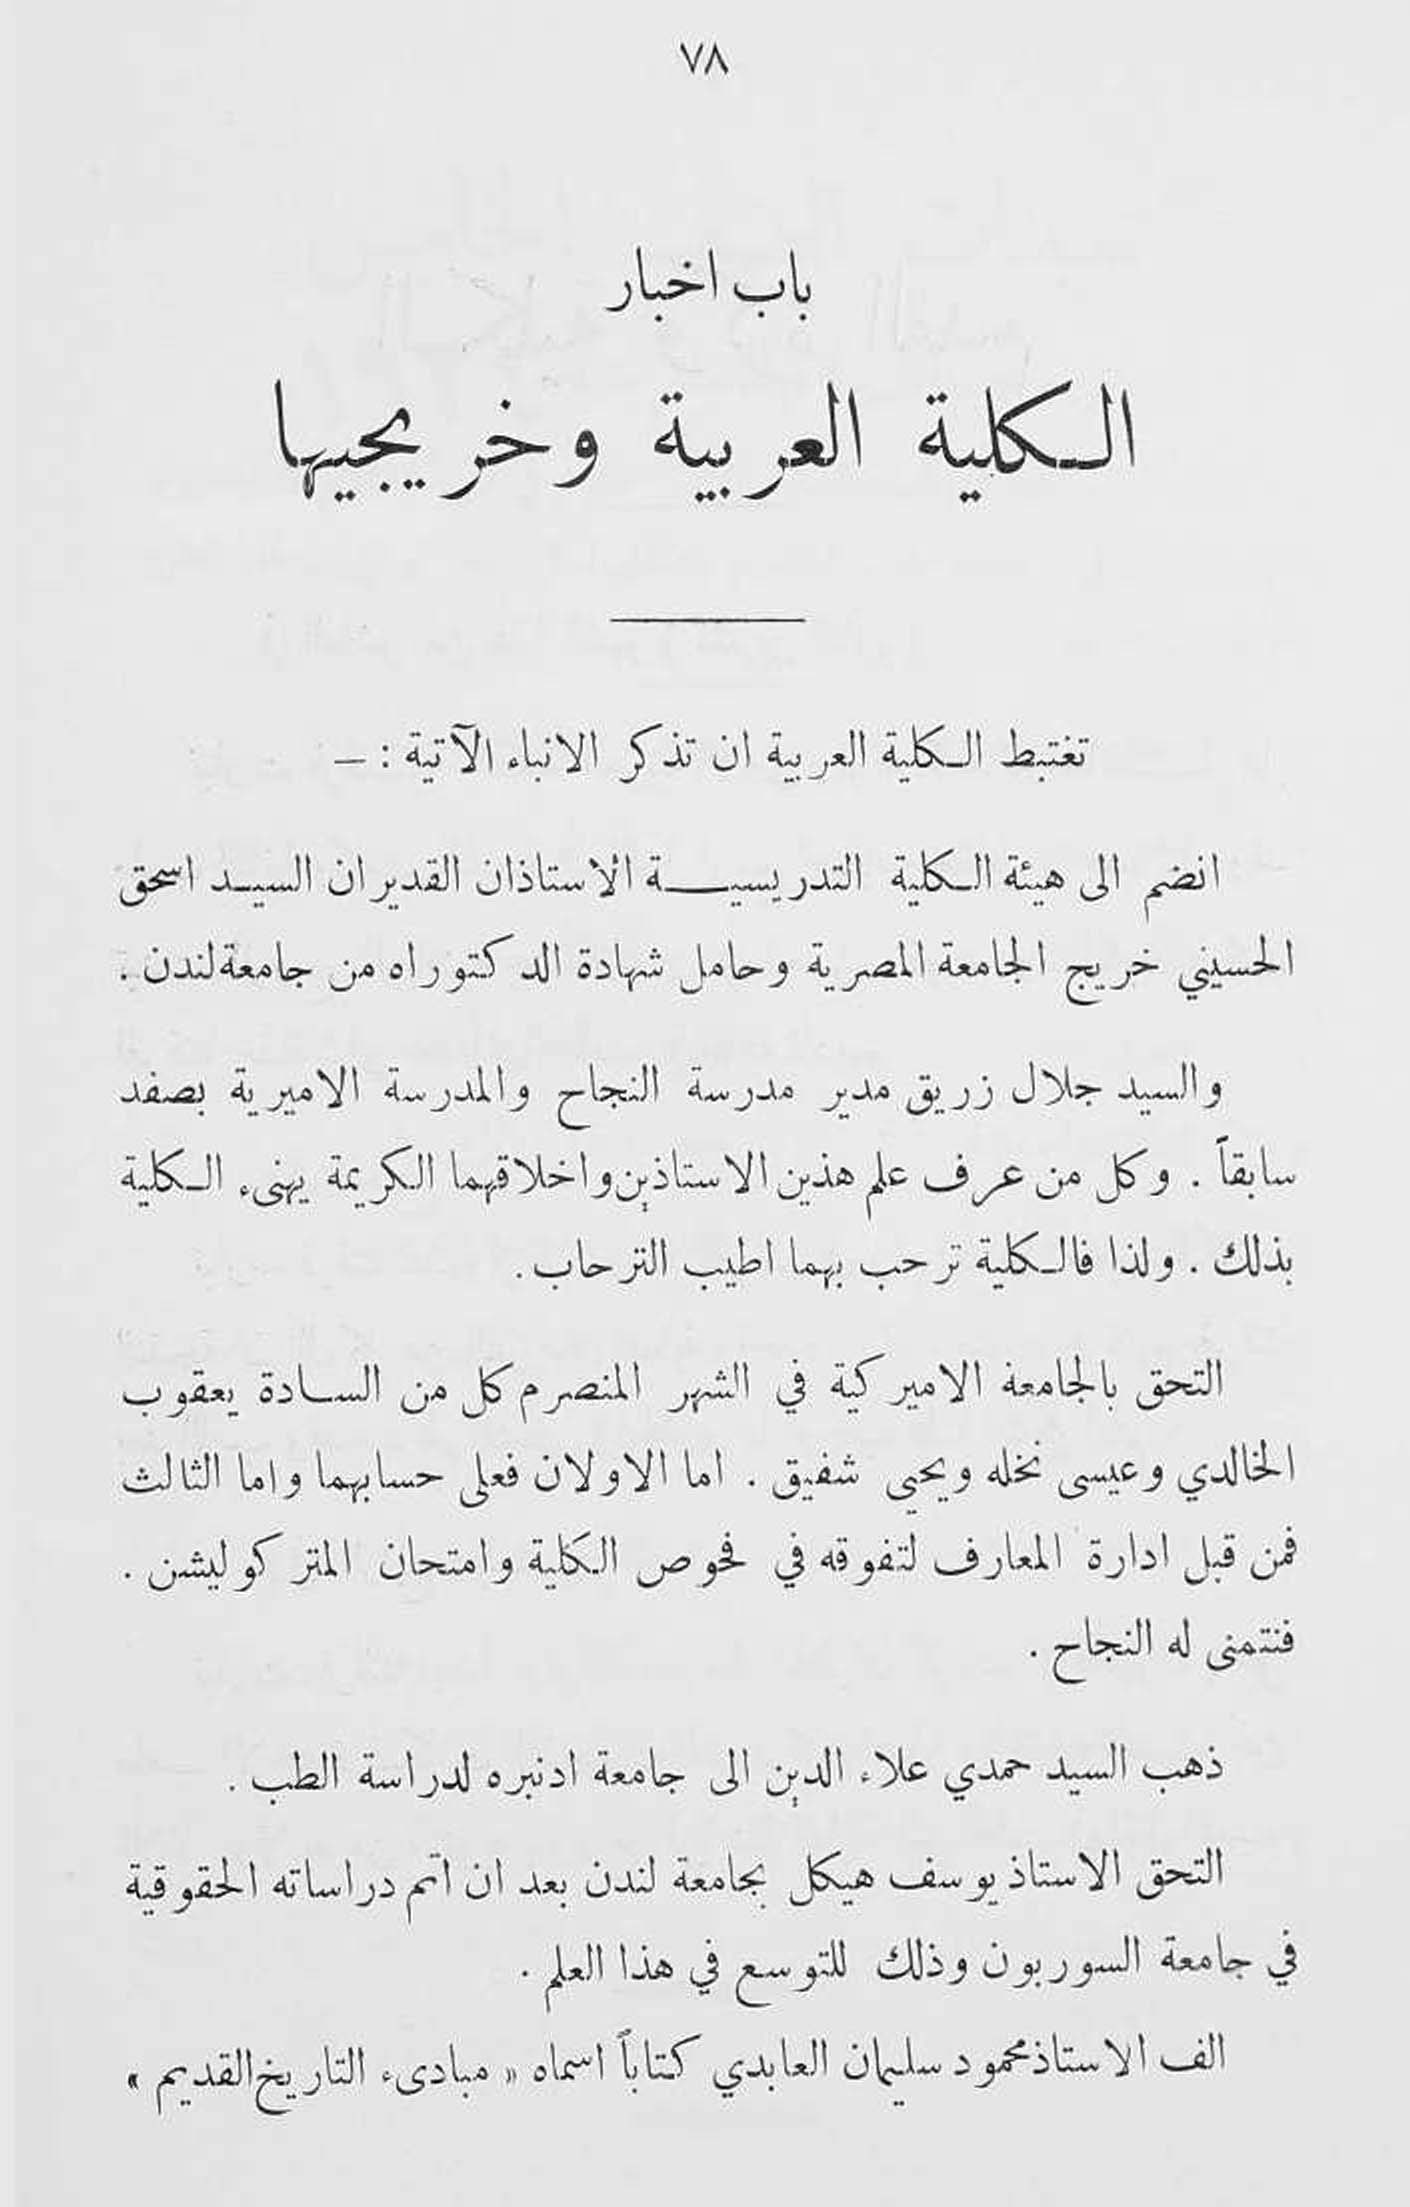 ٧٨
باب اخبار
الكلية العربية وخريجيها
تغتبط الكلية العربية ان تذكر الانباء الآتية : —
انضم الى هيئة الكلية التدريسية الاستاذان القديران السيد اسحق
الحسيني خريج الجامعة المصرية وحامل شهادة الدكتوراه من جامعة لندن .
والسيد جلال زريق مدير مدرسة النجاح والمدرسة الاميرية بصفد
سابقاً . وكل من عرف علم هذين الاستاذين واخلاقهما الكريمة يهنىء الكلية
بذلك . ولذا فالكلية ترحب بهما اطيب الترحاب .
التحق بالجامعة الاميركية في الشهر المنصرم كل من السادة يعقوب
الخالدي وعيسى نخله ويحيى شفيق . اما الاولان فعلى حسابهما واما الثالث
فمن قبل ادارة المعارف لتفوقه في فحوص الكلية وامتحان المتركوليشن .
فنتمنى له النجاح .
ذهب السيد حمدي علاء الدين الى جامعة ادنبره لدراسة الطب .
التحق الاستاذ يوسف هيكل بجامعة لندن بعد ان اتم دراساته الحقوقية
في جامعة السوربون وذلك للتوسع في هذا العلم .
الف الاستاذ محمود سليمان العابدي كتاباً اسماه « مبادىء التاريخ القديم »